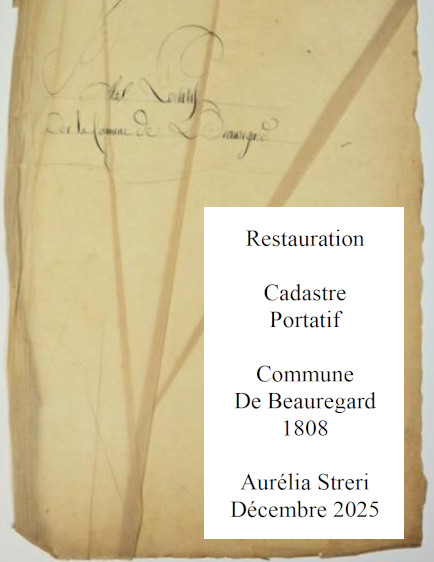 de la Commune de Beauregard
Restauration
Cadastre
Portatif
Commune
De Beauregard
1808
Aurélia Streri
Décembre 2025